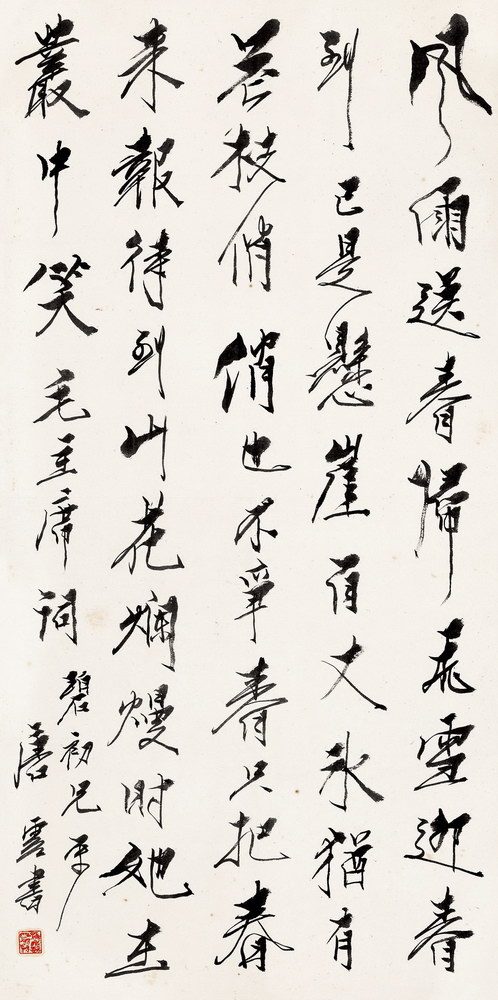 風雨送春歸飛雪迎春
到已是懸崖百丈冰猶有
花枝俏俏也不爭春只把春
來報待到山花爛熳時她在
叢中笑毛主席詞
碧初兄正
唐雲書